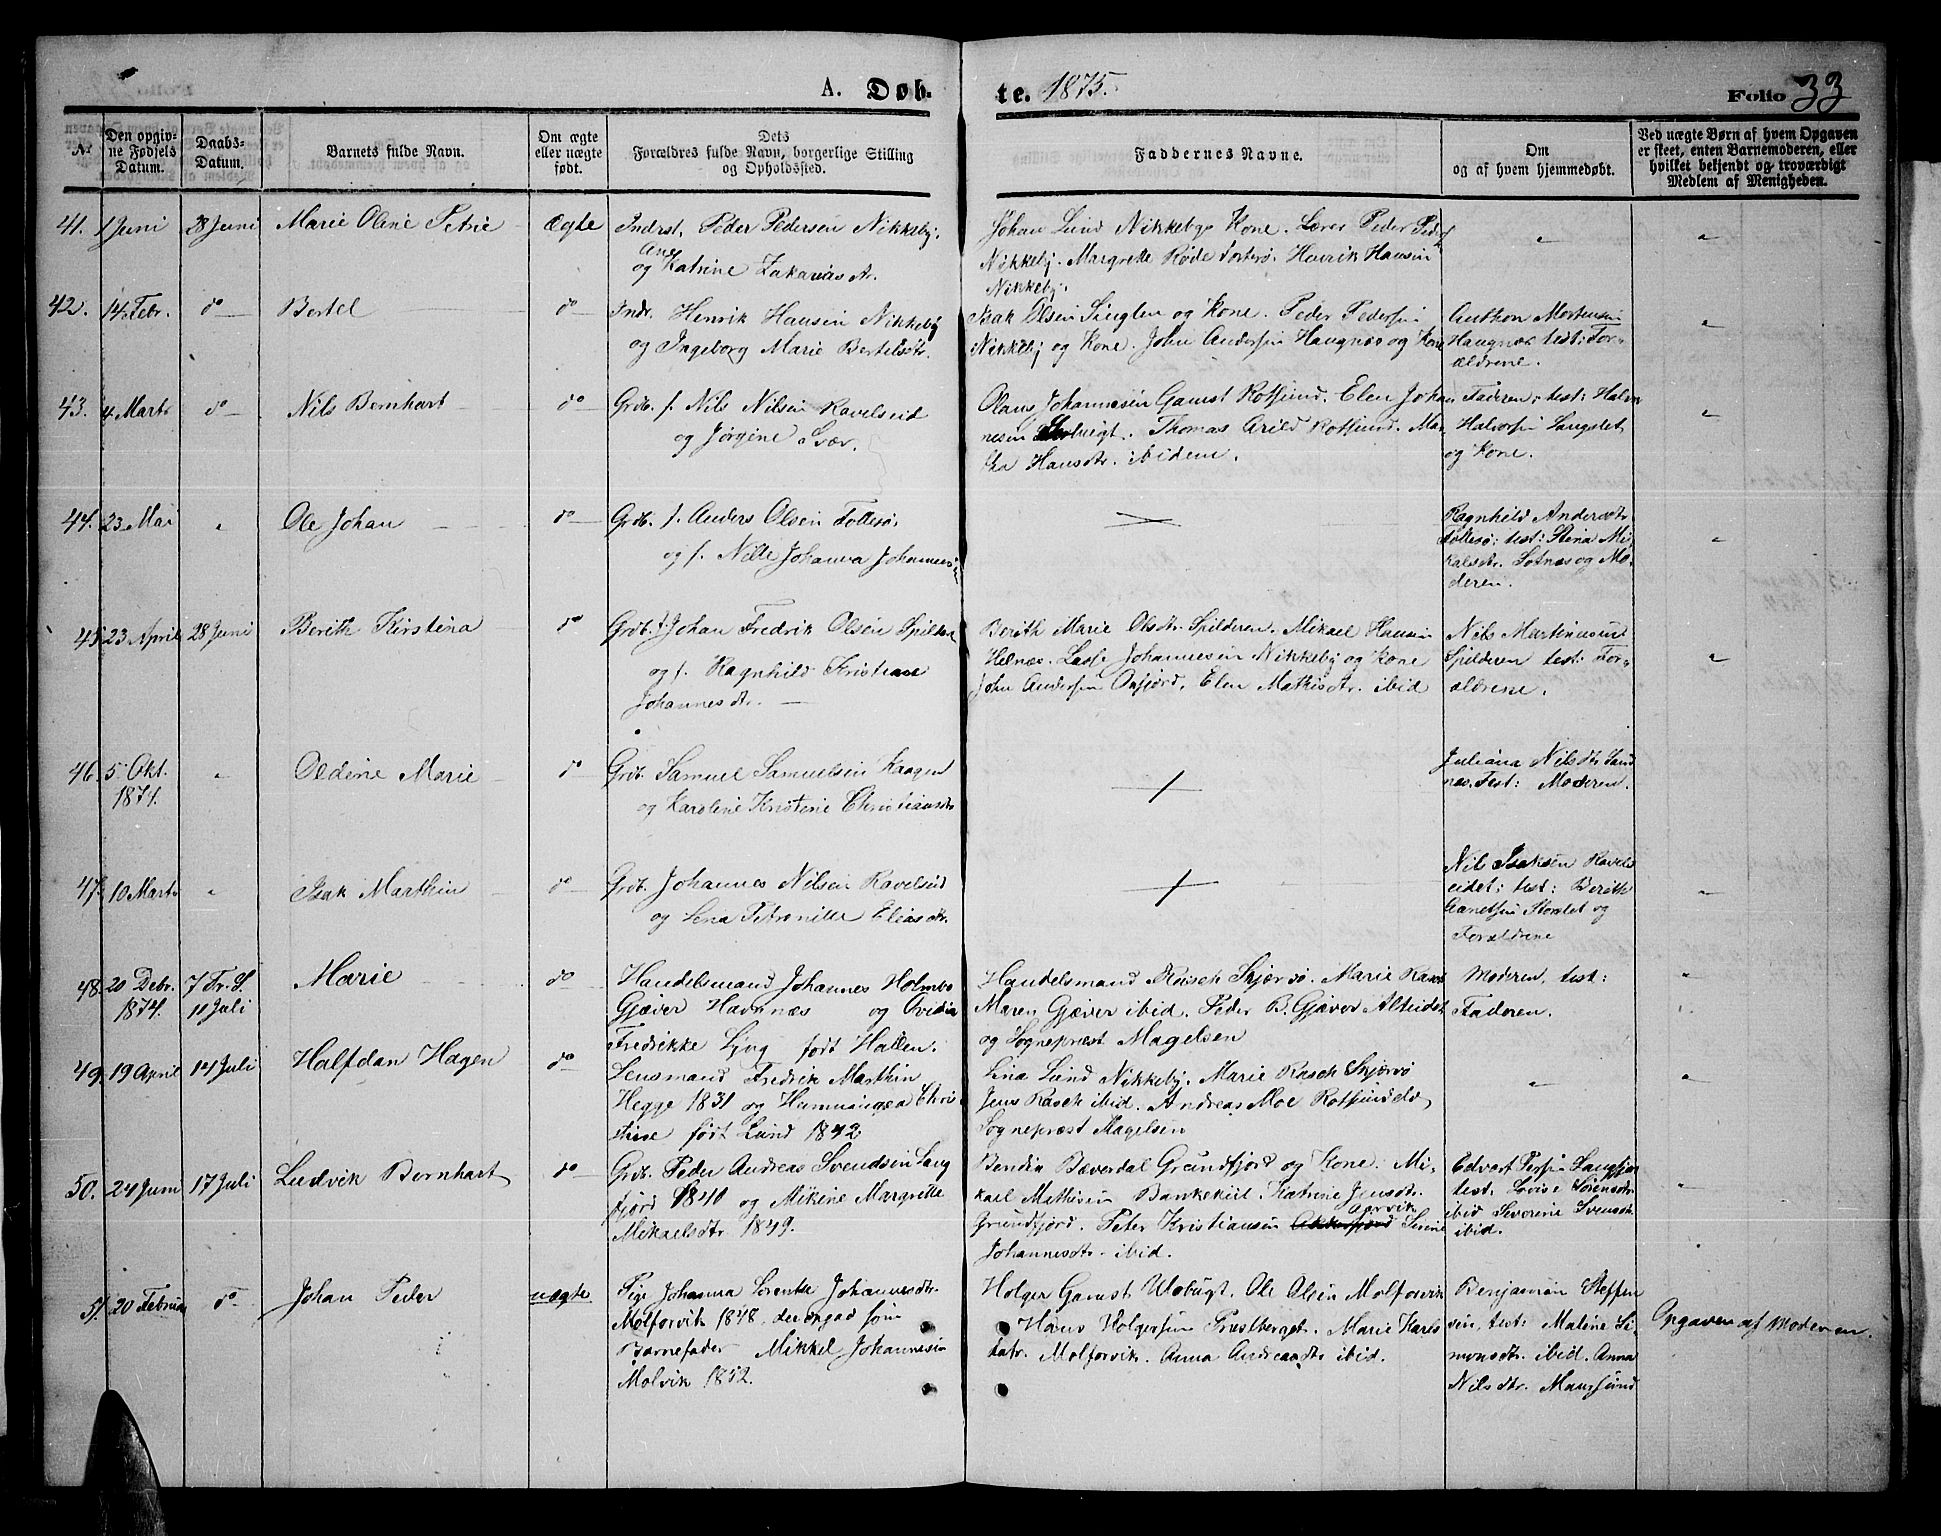 A. Døb-
te. 1875.
Folio 33
Nr.
Den opgiv-
ne Fødsels
Datum.
Daabs-
Datum.
Barnets fulde Navn.
Om ægte
eller uægte
født.
Dets
Forældres fulde Navn, borgerlige Stilling
og Opholdssted.
Faddernes Navne.
Om
og af hvem hjemmedøbt.
Ved uægte Børn af hvem Opgaven
er skeet, enten Barnemoderen, eller
hvilket bekjendt og troværdigt
Medlem af Menigheden.
41. 1 Juni 28 Juni Marie Oline Petrie Ægte
Indrst. Peder Pedersen Nikkeby.
og Ane Katrine Zakariasdr.
Johan Lund Nikkeby Kone. Lærer Peder
Nikkeby. Margrethe Røde Henrik Hansen
Nikkeby.
42. 14 Febr. do Bertel do
Indr. Henrik Hansen Nikkeby
og Ingeborg Marie Bertelsdtr.
Isak Olsen Singlen og Kone. Peder Pedersen
Nikkeby og Kone. John Andersen Haugnæs og Kone
Anthon Mortensen
Haugnæs test: For-
ældrene.
43. 4 Marts do Nils Bernhart do
Grdb. f. Nils Nilsen Ravelseid
og Jørgine Svær.
Olaus Johannesen Gamst Rotsund. Elen Johan
nesen Thomas Arild Rotsund. Mar
tha Hansdtr. ibidem.
Faderen, test: Halvor
Halvorsen Langslet
og Kone.
44. 23 Mai " Ole Johan do
Grdb. f. Anders Olsen Follesø.
og f. Nille Johanna Johannes
Ragnhild Andersdtr
test: Stina Mi
kalsdtr. Sotnæs og Mo
deren.
45. 23 April 28 Juni Berith Kirstina do
Grdb. f. Johan Fredrik Olsen Spildra
og f. Ragnhild Kristiane
Johannesdtr.
Berith Marie Olsdtr. Spilderen. Mikael Hansen
Helnæs. Lasse Johannesen Nikkeby og Kone
John Andersen Oxfjord. Elen Mathisdtr. ibid
Nils Martinussen
Spilderen test: For-
ældrene.
46. 5 Okt. " Oldine Marie do
1874.
Grdb. Samuel Samuelsen Kaagen
og Karoline Kristine Christiansdtr
Juliana Nilsdtr Sand
næs. Test: Moderen.
47. 10 Marts " Isak Marthin do
Grdb. Johannes Nilsen Ravelseid
og Lena Petronille Eliasdtr.
Nils Isaksen Ravels
eidet; test: Berith
Storslet og
Forældrene
48. 20 Debr. 7 Tr. S. Marie do
1874. 11 Juli
Handelsmand Johannes Holmbo
Gjæver Havnnæs og Ovidia
Fredrikke Lyng født Hallen.
Handelsmand Rasch Skjærvø. Marie Rasch
Maren Gjæver ibid. Peder B. Gjæver Alteidet
og Sognepræst Magelsen
Moderen, test:
Faderen.
49. 19 April 14 Juli Halfdan Hagen do
Lensmand Fredrik Marthin
Hegge 1831 og Chri
stine født Lund 1842
Lina Lund Nikkeby. Marie Rasch Skjærvø
Jens Rasch ibid. Andreas Moe Rotsundelv,
Sognepræst Magelsen
50. 24 Juni 17 Juli Ludvik Bernhart do
Grdb. Peder Andreas Svendsen Lang
fjord 1840 og Mikine Margrette
Mikaelsdtr. 1849.
Bendix Bæverdal Grundfjord og Kone. Mi-
kael Mathisen Bankekeil. Katrine Jensdtr.
Grundfjord. Peter Kristiansen Aarvik Serine
Johannesdtr. ibid.
Edvart Langfjor
test: Lovise Sørensdtr.
ibid Severine Svensdtr.
ibid.
51. 20 Februar do Johan Peder uægte
Pige Johanna Lorentse Johannesdtr.
Molforvik 1848, der angav som
Barnefader Mikkel Johannesen
Molvik 1852.
Holger Gamst Ulobugt. Ole Olsen Molforvik
Hans Holgersen Præstberget. Marie Karls
datr. Molforvik. Anna Andreasdtr ibid.
Benjamin Steffen
sen, test: Maline Si-
monsdtr. ibid. Anna
Nilsdtr. Maursund
Opgaven af Moderen.